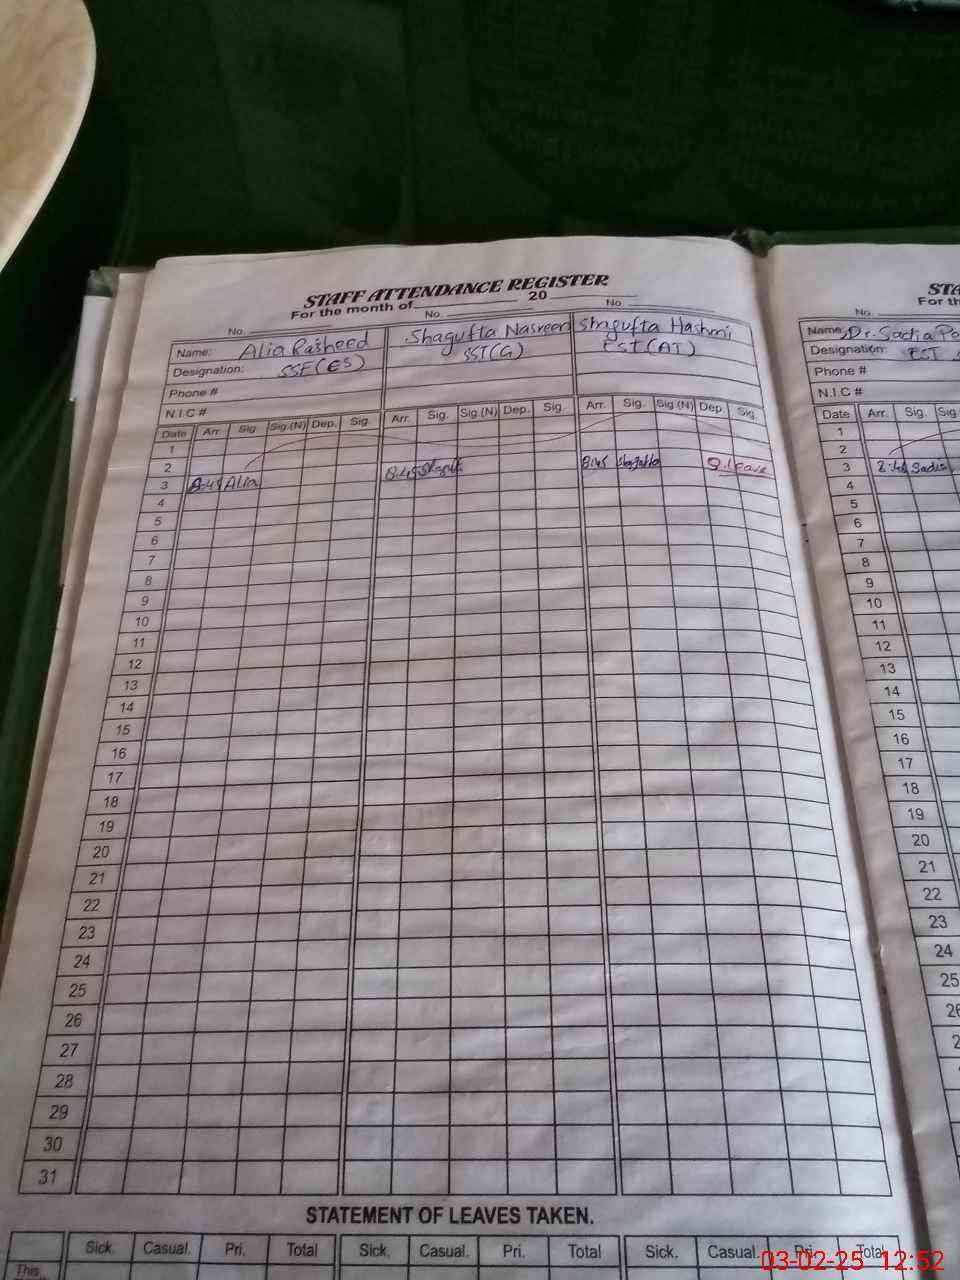 STAFF ATTENDANCE REGISTER
For the month of 20
No. No. No.
Name: Alia Rasheed Shagufta Nasreen Shagufta Hashmi
Designation: SSE(ES) SST(G) EST(AT)
Phone #
N.I.C #
Date Arr. Sig. Sig.(N) Dep. Sig. Arr. Sig. Sig.(N) Dep. Sig. Arr. Sig. Sig.(N) Dep. Sig.
1
2
3 8:45 Alia 8:45 8:45 leave
4
5
6
7
8
9
10
11
12
13
14
15
16
17
18
19
20
21
22
23
24
25
26
27
28
29
30
31
STATEMENT OF LEAVES TAKEN.
Sick. Casual. Pri. Total Sick. Casual. Pri. Total Sick. Casual. Pri. Total
This
STA
For th
No.
Name: Dr. Sadia
Designation: EST
Phone #
N.I.C #
Date Arr. Sig. Sig
1
2
3 Sadia
4
5
6
7
8
9
10
11
12
13
14
15
16
17
18
19
20
21
22
23
24
25
03-02-25 12:52